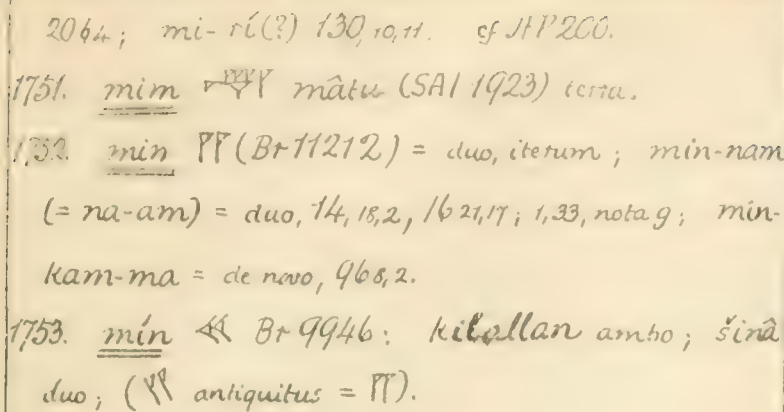 2064; mi-rí(?) 130,10,11. cf HP 200.
1751. mim mâtu (SAI 1923) terra.
1752. min 𒈫 (Br 11212) = duo, iterum; min-nam
(= na-am) = duo, 14,18,2, 16 21,17; 1,33, nota 9; min-
kam-ma = de novo, 968,2.
1753. mín Br 9946: kilallan ambo; šinâ
duo; ( antiquitus = 𒈫).